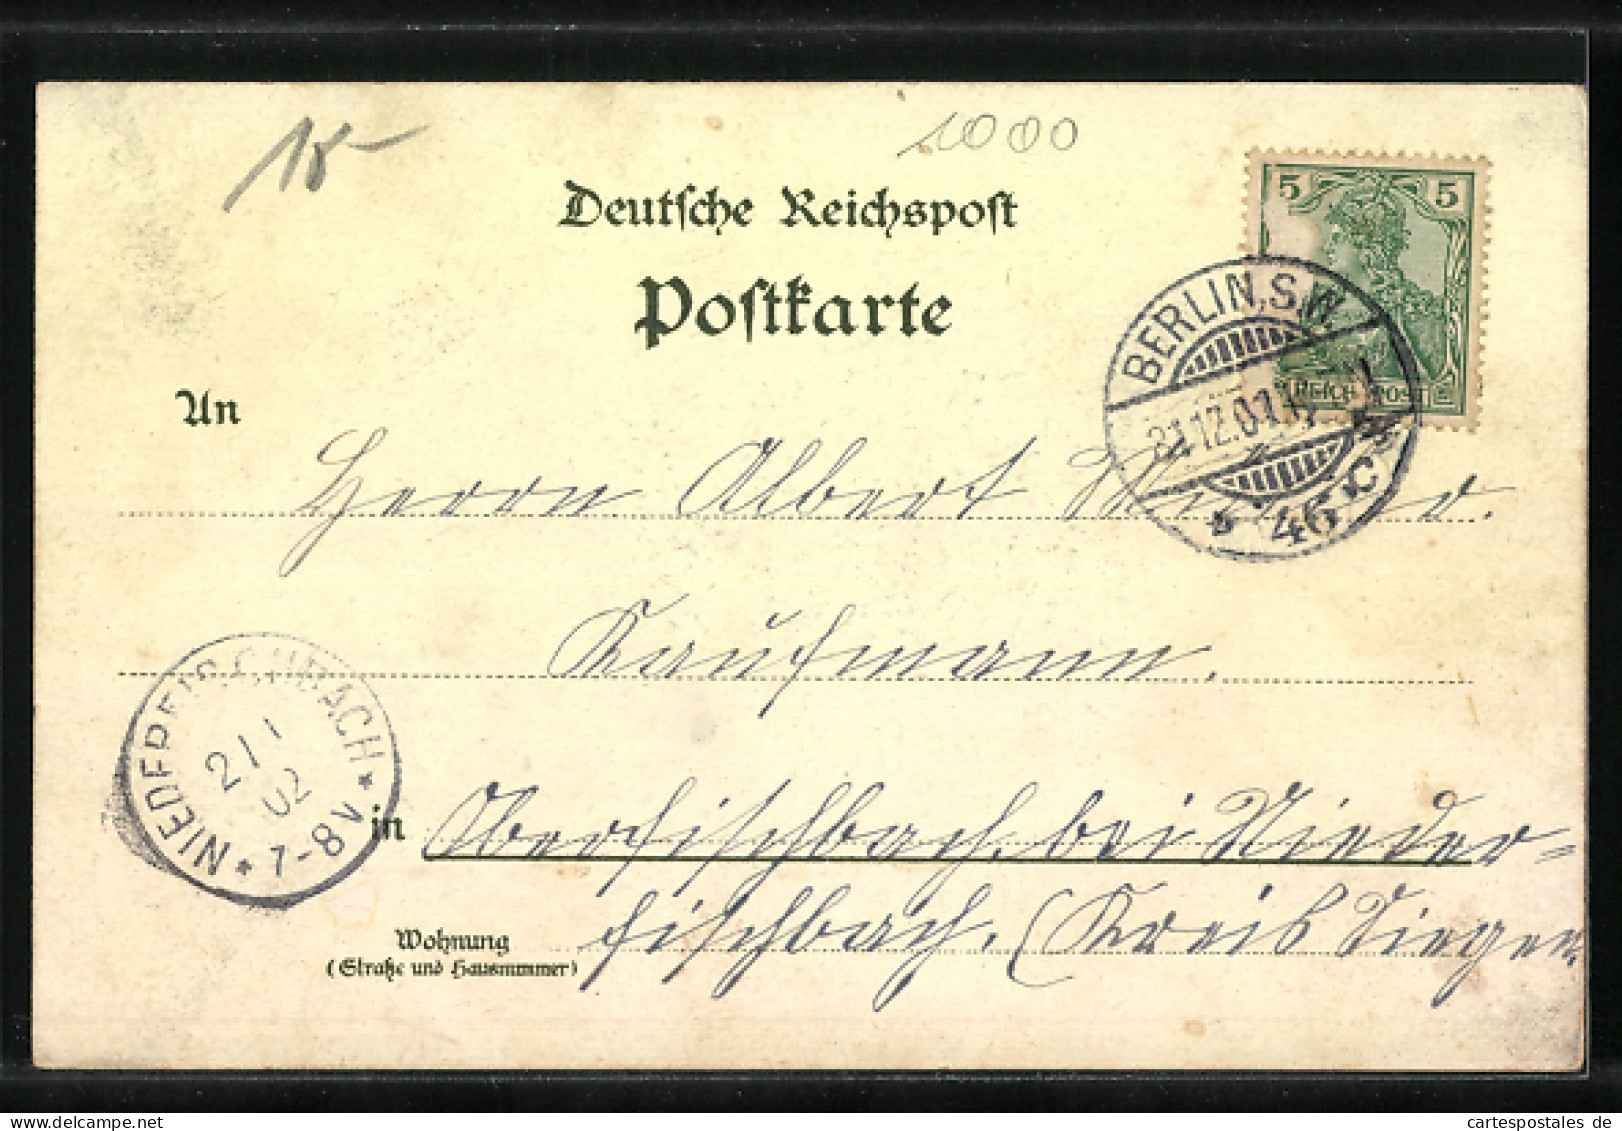 15-
1000
Deutsche Reichspost
Postkarte
5 5
REICHSPOST
BERLIN, S.W.
31.12.01.
* 46 c
An
Herrn Albert
Kaufmann.
NIEDERFISCHBACH
2 1 1
02
* 7-8V *
in
Oberfischbach bei Nieder-
fischbach, (Kreis Siegen
Wohnung
(Straße und Hausnummer)
cartespostales de